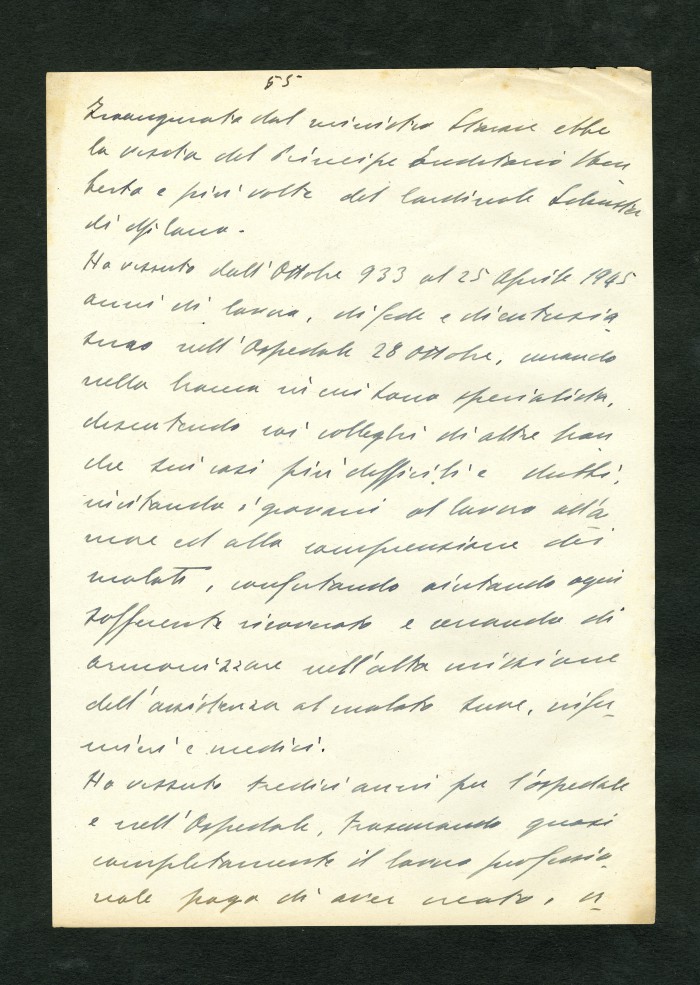 55
Inaugurato dal ministro Starace ebbe
la visita del Principe Ereditario Um
berto e più volte del Cardinale Schuster
di Milano.
Ho vissuto dall'Ottobre 933 al 25 Aprile 1945
anni di lavoro, di fede e di entusia
smo nell'Ospedale 28 Ottobre, curando
nella branca in cui sono specialista,
discutendo coi colleghi di altre bran
che sui casi più difficili e dubbi,
incitando i giovani al lavoro all'a
more ed alla comprensione dei
malati, confortando aiutando ogni
sofferente ricoverato e cercando di
armonizzare nell'alta missione
dell'assistenza al malato suore, infer-
mieri e medici.
Ho vissuto tredici anni per l'ospedale
e nell'Ospedale, trascurando quasi
completamente il lavoro professio
nale pago di aver creato,